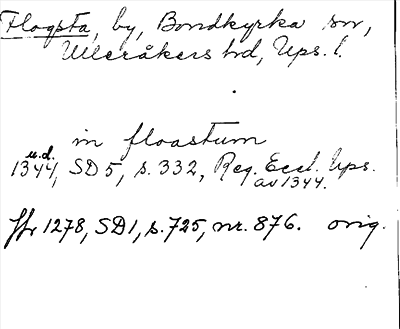 Flogsta, by, Bondkyrka sn,
Ulleråkers hd, Ups. l.
in floastum
u.d.
1344, SD 5, s. 332, Reg. Eccl. Ups.
av 1344.
ffr 1278, SD 1, s. 725, nr. 876. orig.